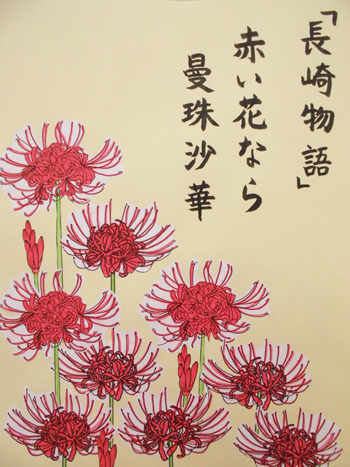 「長崎物語」
赤い花なら
曼珠沙華